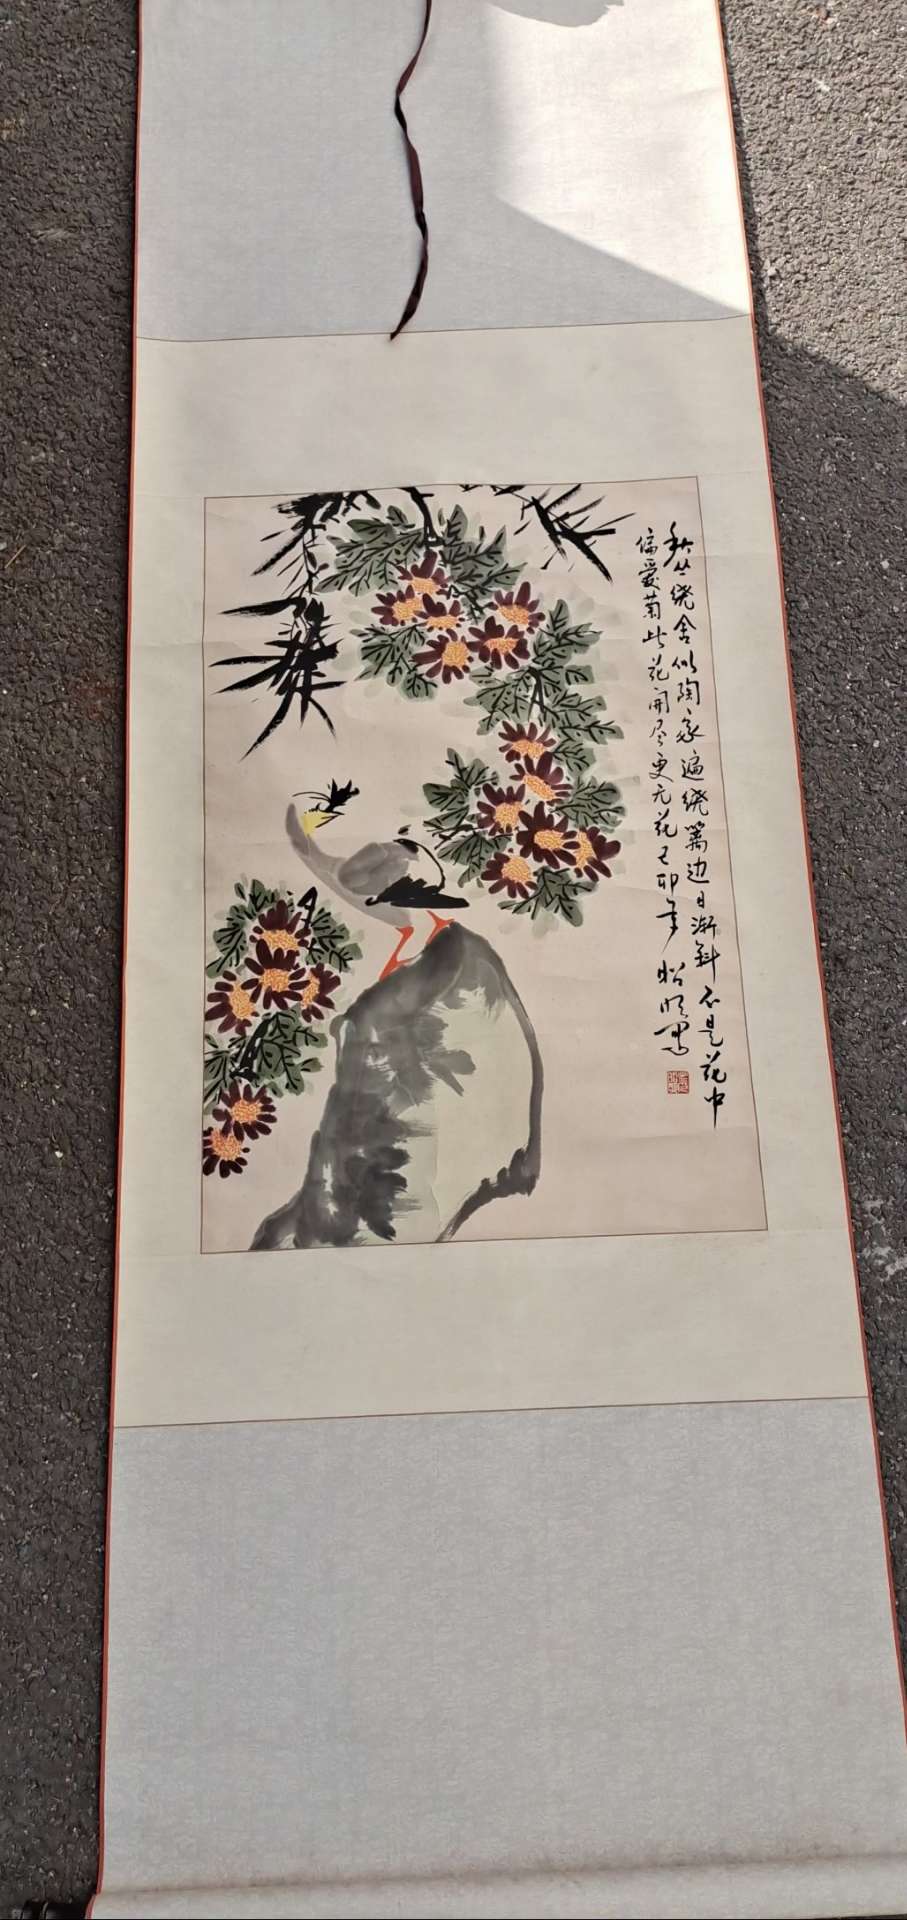 秋丛绕舍似陶家遍绕篱边日渐斜不是花中
偏爱菊此花开尽更无花己卯年